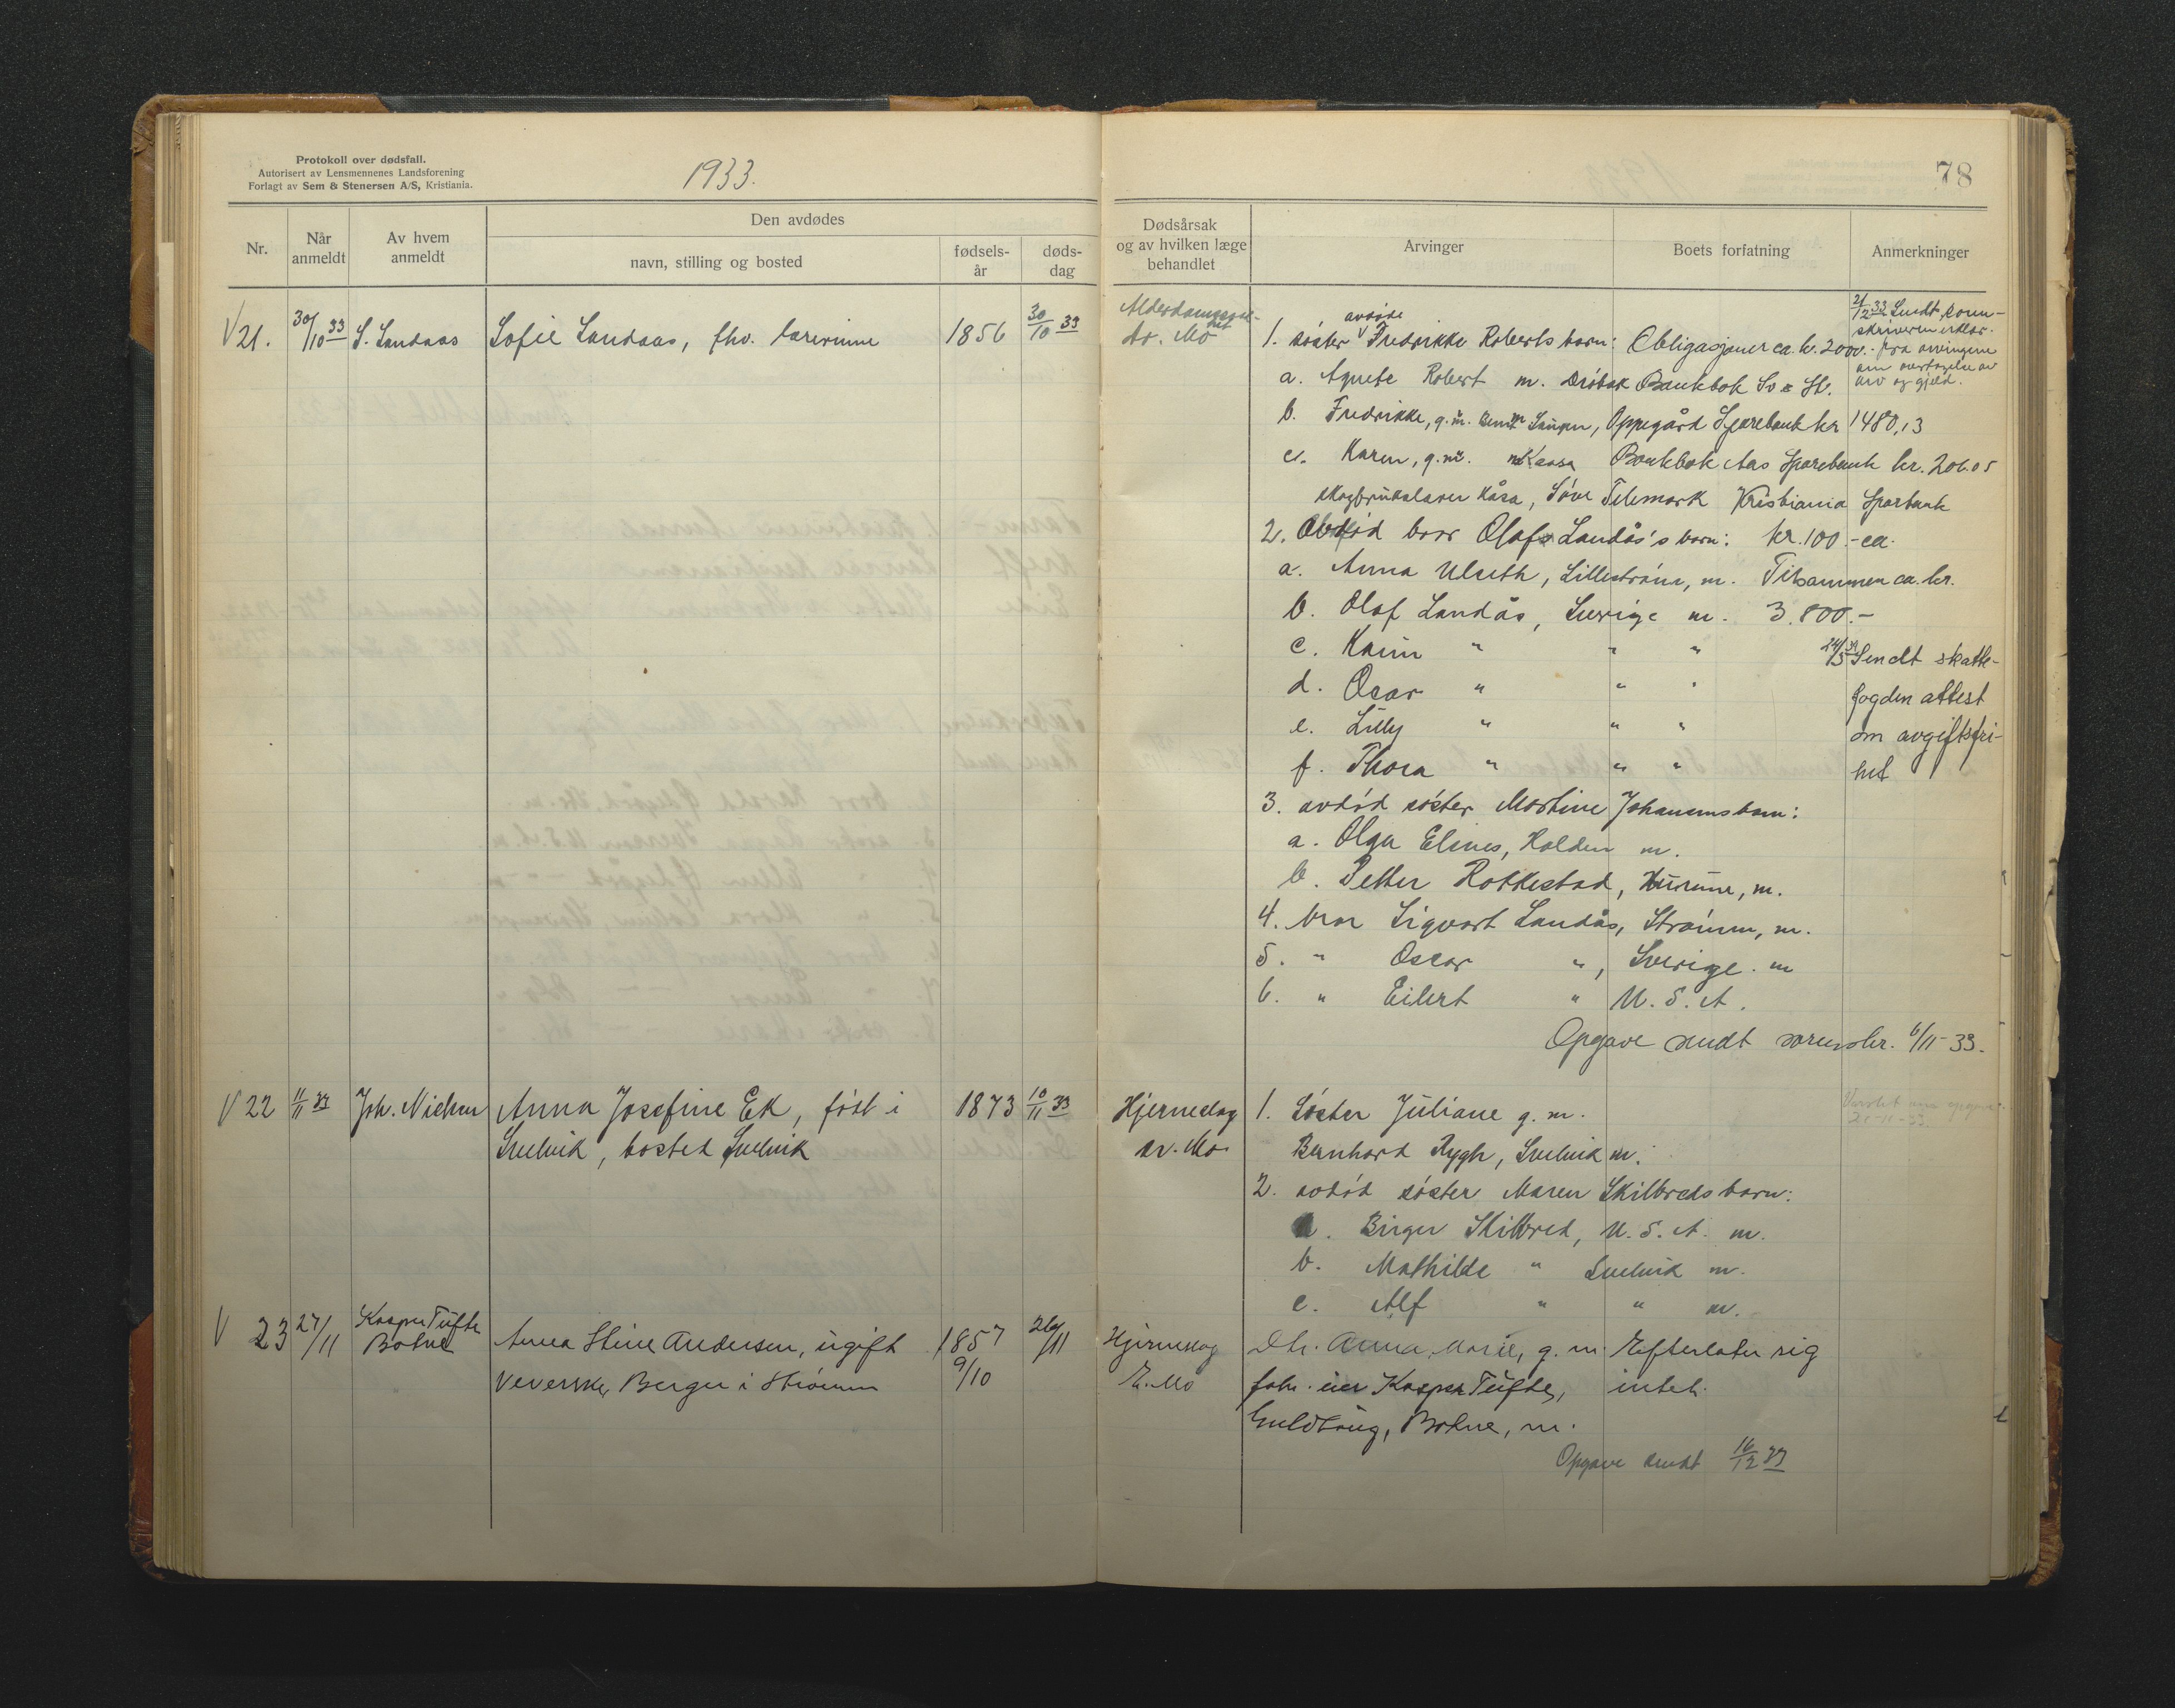 Protokoll over dødsfall.
Autorisert av Lensmennenes Landsforening
Forlagt av Sem & Stenersen A/S, Kristiania.
1933.
78
Nr.
Når anmeldt
Av hvem anmeldt
Den avdødes
navn, stilling og bosted
fødsels-år
døds-dag
Dødsårsak og av hvilken læge behandlet
Arvinger
Boets forfatning
Anmerkninger
V 21. 30/10 33 S. Landaas Sofie Landaas, fhv. lærerinne 1856 30/10 33
dr. Mo
avdøde
1. søster Fredrikke Roberts barn: Obligasjoner ca. kr. 2000.-
a. Agnete Robert m. Drøbak Bankbok
b. Fredrikke, g.m. Oppegård Sparebank kr 1480,13
c. Karen, g.m. Kaasa Bankbok Aas Sparebank kr. 206.05
skogbrukslærer Kåsa, Søve Telemark Kristiania Sparbank
2. Avdød bror Olaf Landås's barn: kr. 100.- ca.
a. Anna Ulseth, Lillestrøm, m. Tilsammen ca. kr.
b. Olaf Landås, Sverige m. 3.800.-
c. Karin " " "
d. Oscar " " "
e. Lilly " " "
f. Thora " " "
3. avdød søster Martine Johansens barn:
a. Olga Elnes, Halden m.
b. Petter Rokkestad, Hurum, m.
4. bror Sigvart Landås, Strømm, m.
5. " Oscar ", Sverige. m
6. " Eilert " U.S.A.
Opgave sendt sorenskr. 6/11-33.
21/12 33 Sendt soren-
skriveren erklær.
fra arvingene
om overtagelse av
arv og gjeld.
Sendt skatte-
fogden attest
om avgiftsfri-
het
V 22 11/11 33 Joh. Nielsen Anna Josefine Ek, født i 1873 10/11 33
Svelvik, bosted Svelvik
Hjerneslag
dr. Mo
1. Søster Juliane g.m.
Bernhard Rygh, Svelvik m.
2. avdød søster Maren Skilbreds barn:
a. Birger Skilbred, U.S.A. m.
b. Mathilde " Svelvik m.
c. Alf " " m.
V 23 27/11 Kasper Tufte
Botne
Anna Stine Andersen, ugift 1857 26/11
Veverske, Berger i Strømm 9/10
Hjerneslag
E. Mo
Dtr. Anna Marie, g.m. Efterlater sig
fabr. eier Kasper Tufte, intet.
Guldhaug, Botne, m.
Opgave sendt 16/12 33